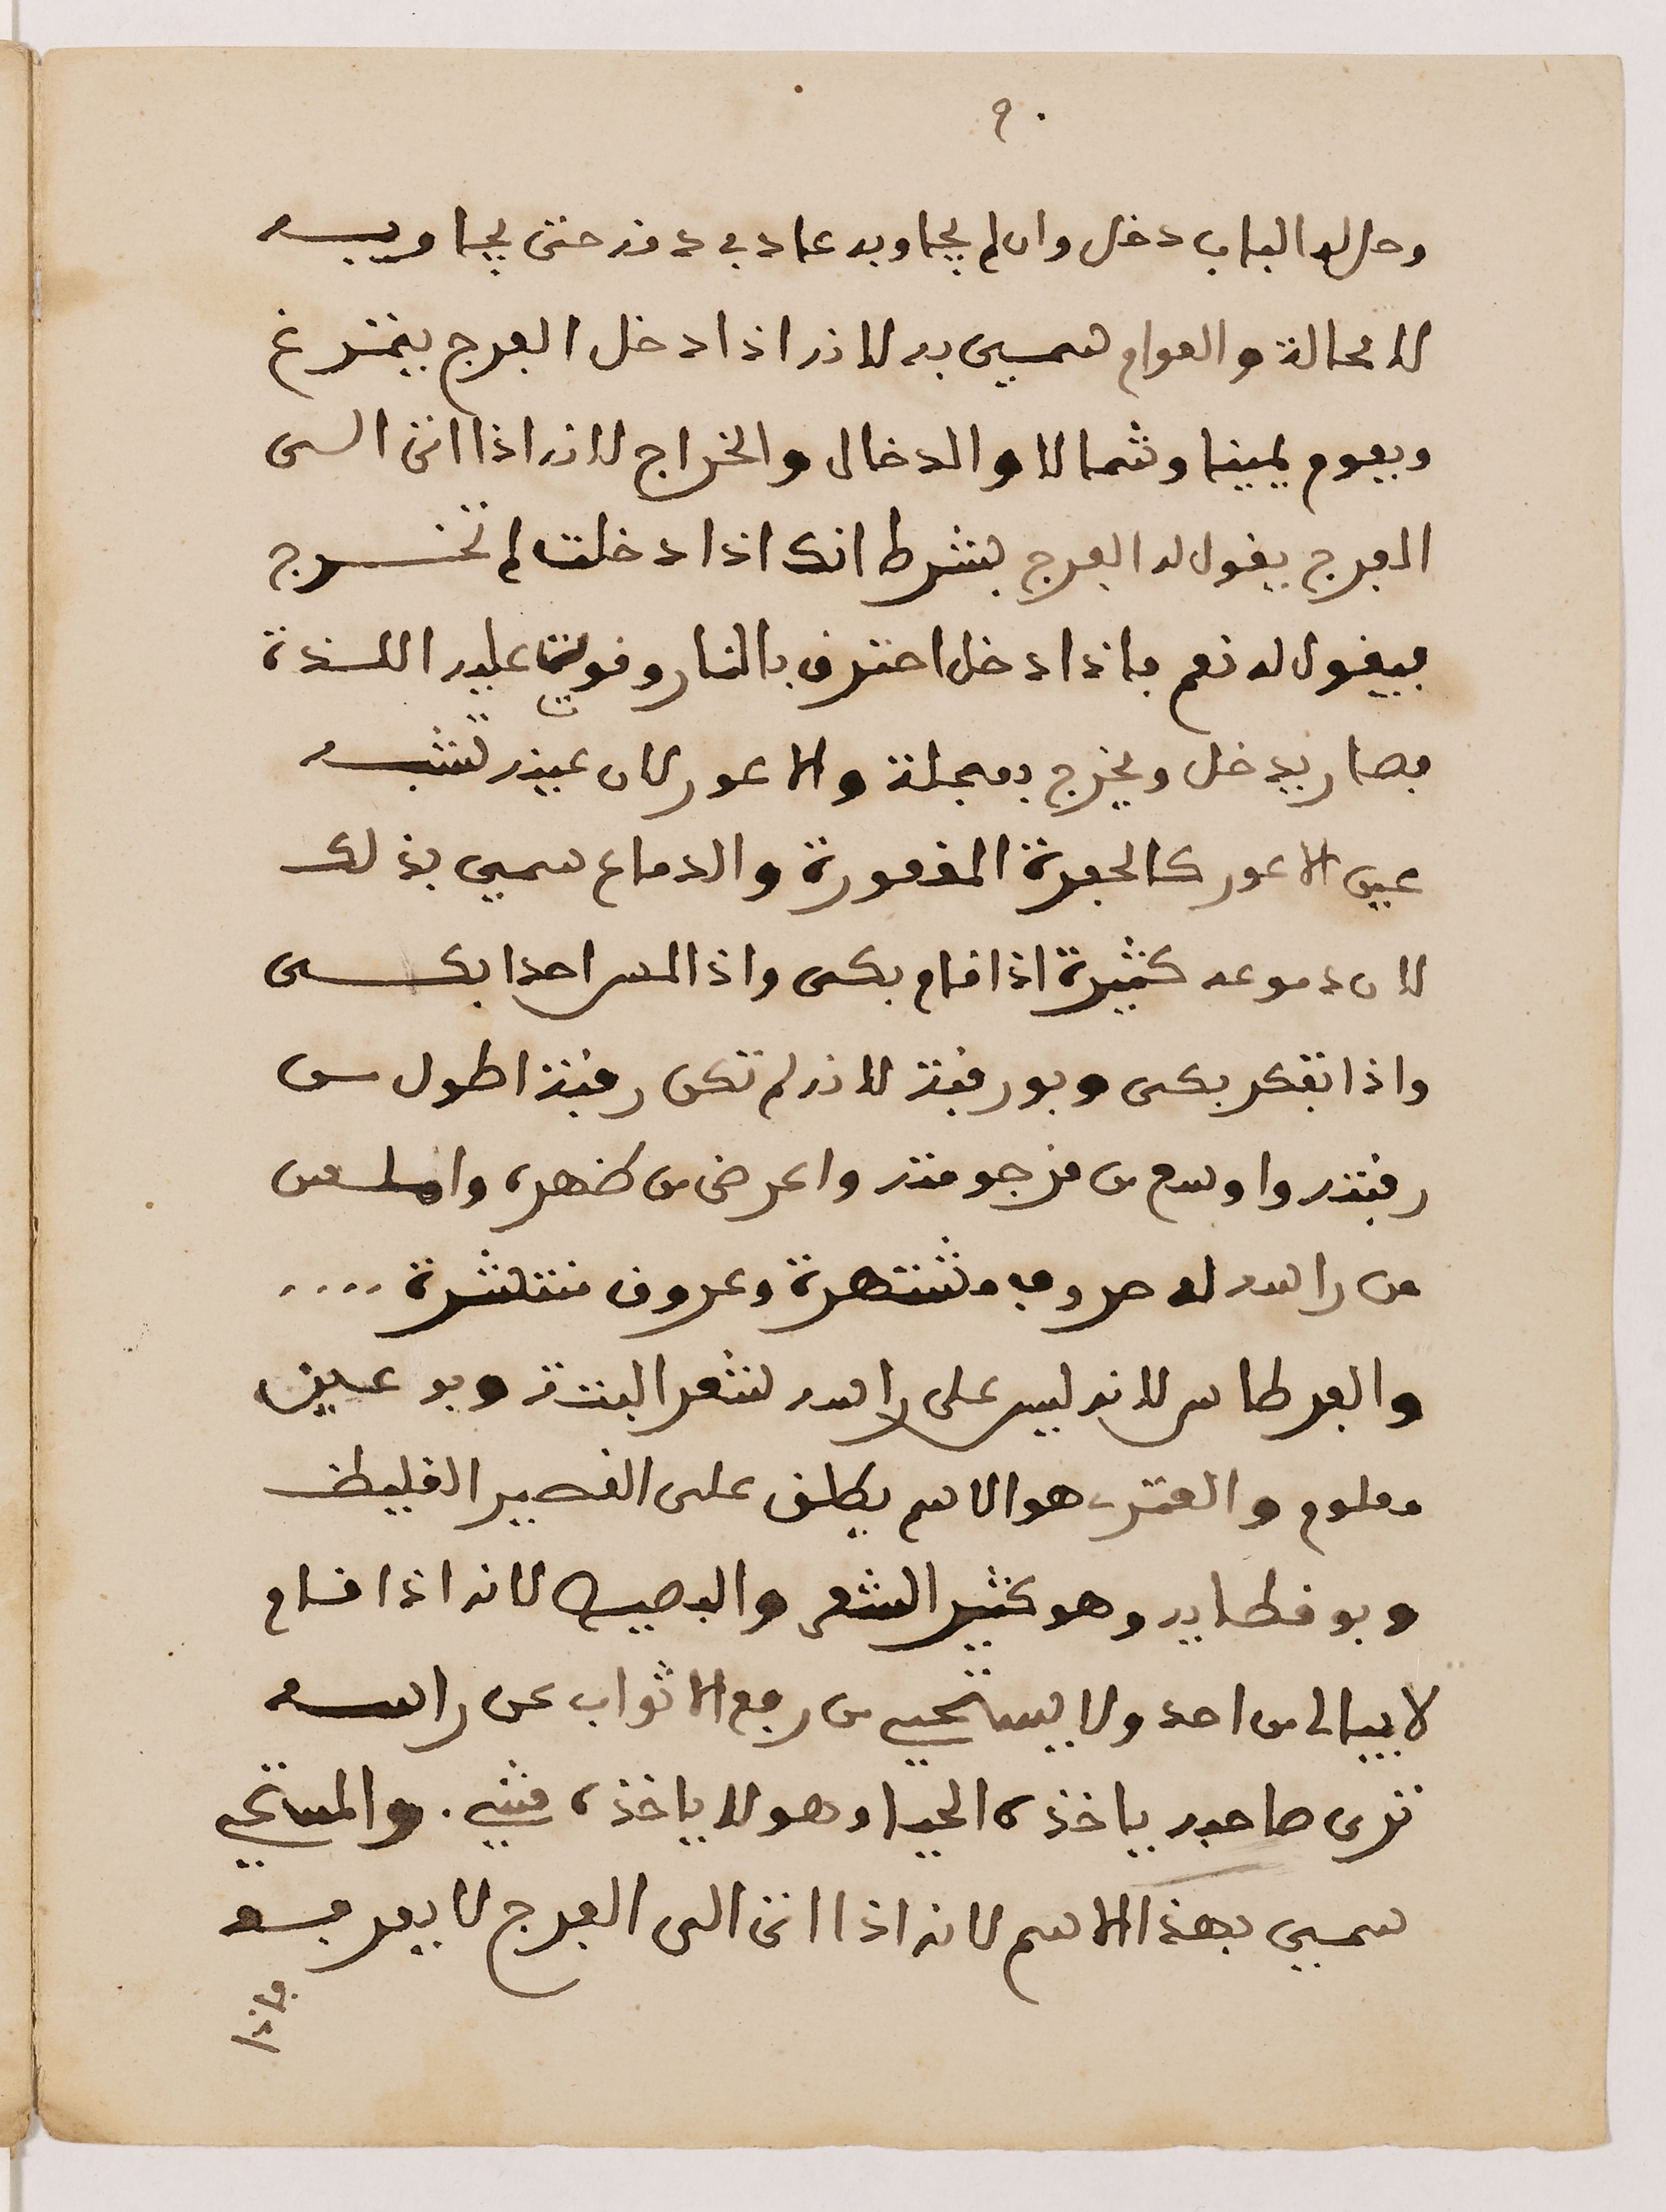 ٩٠
وحل له الباب دخل وان لم يجاوبه عاد في دقه حتى يجاوبه
لا محالة والعوام سمي به لانه اذا دخل الفرج يتمرغ
ويعوم يمينا وشمالا والدخال والخراج لانه اذا اتى الى
الفرج يقول له الفرج بشرط انك اذا دخلت لم تخرج
فيقول له نعم فاذا دخل احترق بالنار وقويت عليه اللذة
فصار يدخل ويخرج بعجلة والاعور لان عينه تشبه
عين الاعور كالحفرة المغمورة والدماع سمي بذلك
لان دموعه كثيرة اذا قام بكى واذا لمس احدا بكى
واذا تفكر بكى وبورقبة لانه لم تكن رقبة اطول من
رقبته واوسع من فرجومته واعرض من ظهره واملس
من راسه له حروف مشتهرة وعروق منتشرة ....
والفرطاس لانه ليس على راسه شعر البتة وبو عين
معلوم والعنتر هو الاسم يطلق على القصير الغليظ
وبو قطايه وهو كثير الشعر والبصيص لانه اذا قام
لا يبالى من احد ولا يستحيي من رفع الاثواب عن راسه
ترى صاحبه ياخذه الحياء وهو لا ياخذه شيء . والمستحي
سمي بهذا الاسم لانه اذا اتى الى الفرج لا يعرفه
فاذا